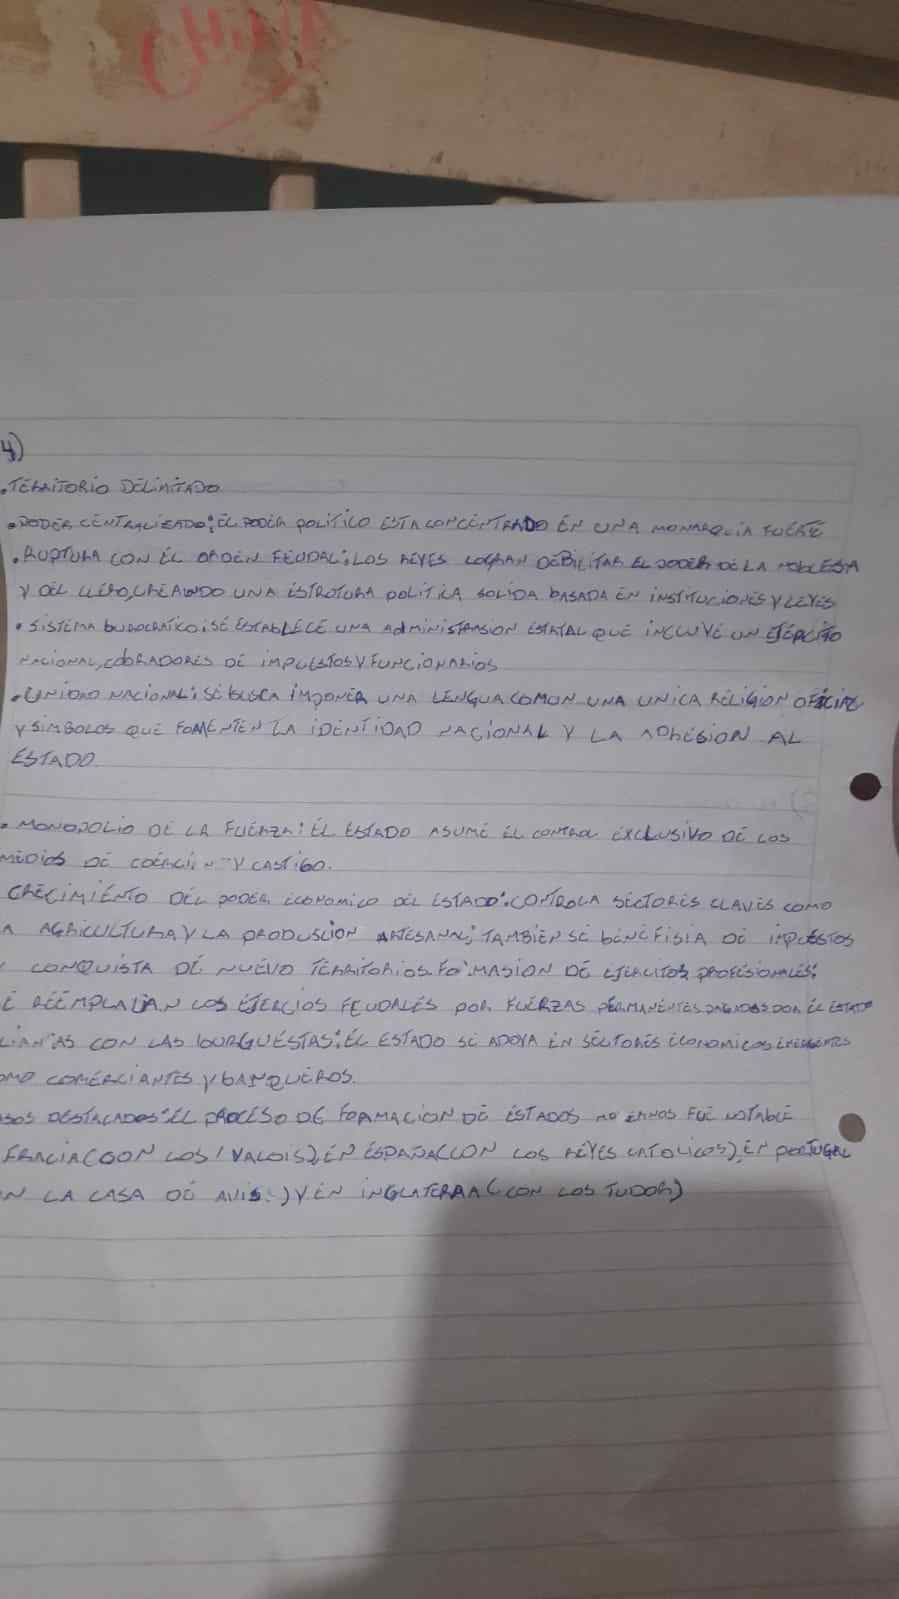 CHINA
4)
. TERRITORIO DELIMITADO
. PODER CENTRALIZADO: EL PODER POLITICO ESTA CONCENTRADO EN UNA MONARQUIA FUERTE
. RUPTURA CON EL ORDEN FEUDAL: LOS REYES LOGRAN DEBILITAR EL PODER DE LA NOBLESA
Y DEL CLERO, CREANDO UNA ESTROTURA POLITICA SOLIDA BASADA EN INSTITUCIONES Y LEYES
. SISTEMA BUROCRATICO: SE ESTABLECE UNA ADMINISTRASION ESTATAL QUE INCLUYE UN EJERCITO
NACIONAL, COBRADORES DE IMPUESTOS Y FUNCIONARIOS
. UNIDAD NACIONAL: SE BUSCA IMPONER UNA LENGUA COMUN UNA UNICA RELIGION OFICIAL
Y SIMBOLOS QUE FOMENTEN LA IDENTIDAD NACIONAL Y LA ADHESION AL
ESTADO.
. MONOPOLIO DE LA FUERZA: EL ESTADO ASUME EL CONTROL EXCLUSIVO DE LOS
MEDIOS DE Y CASTIGO.
CRECIMIENTO DEL PODER ECONOMICO DEL ESTADO: CONTROLA SECTORES CLAVES COMO
A AGRICULTURA Y LA PRODUSCION ARTESANAL; TAMBIEN SE BENEFISIA DE IMPUESTOS
Y CONQUISTA DE NUEVO TERRITORIOS. FORMASION DE EJERCITOS PROFESIONALES:
E REEMPLAZAN LOS EJERCIOS FEUDALES POR FUERZAS PERMANENTES PAGIDAS POR EL ESTADO
LIANZAS CON LAS BURGUESTAS: EL ESTADO SE APOYA EN SECTORES ECONOMICOS EMERGENTES
OMO COMERCIANTES Y BANQUEROS.
SOS DESTACADOS: EL PROCESO DE FORMACION DE ESTADOS MODERNOS FUE NOTABLE
FRACIA (CON LOS VALOIS), EN ESPAÑA (CON LOS REYES CATOLICOS), EN PORTUGAL
N LA CASA DE AVIS) Y EN INGLATERRA (CON LOS TUDOR)